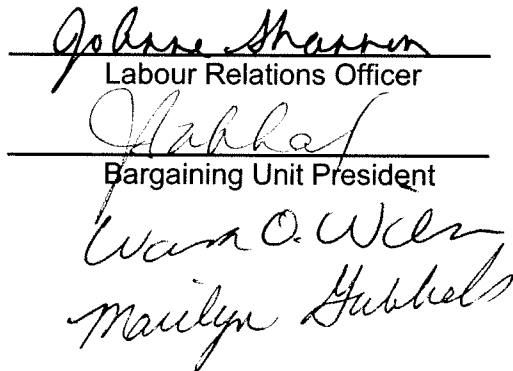 JoAnne Shannon
Labour Relations Officer
Bargaining Unit President
O.
Marilyn Gubbels